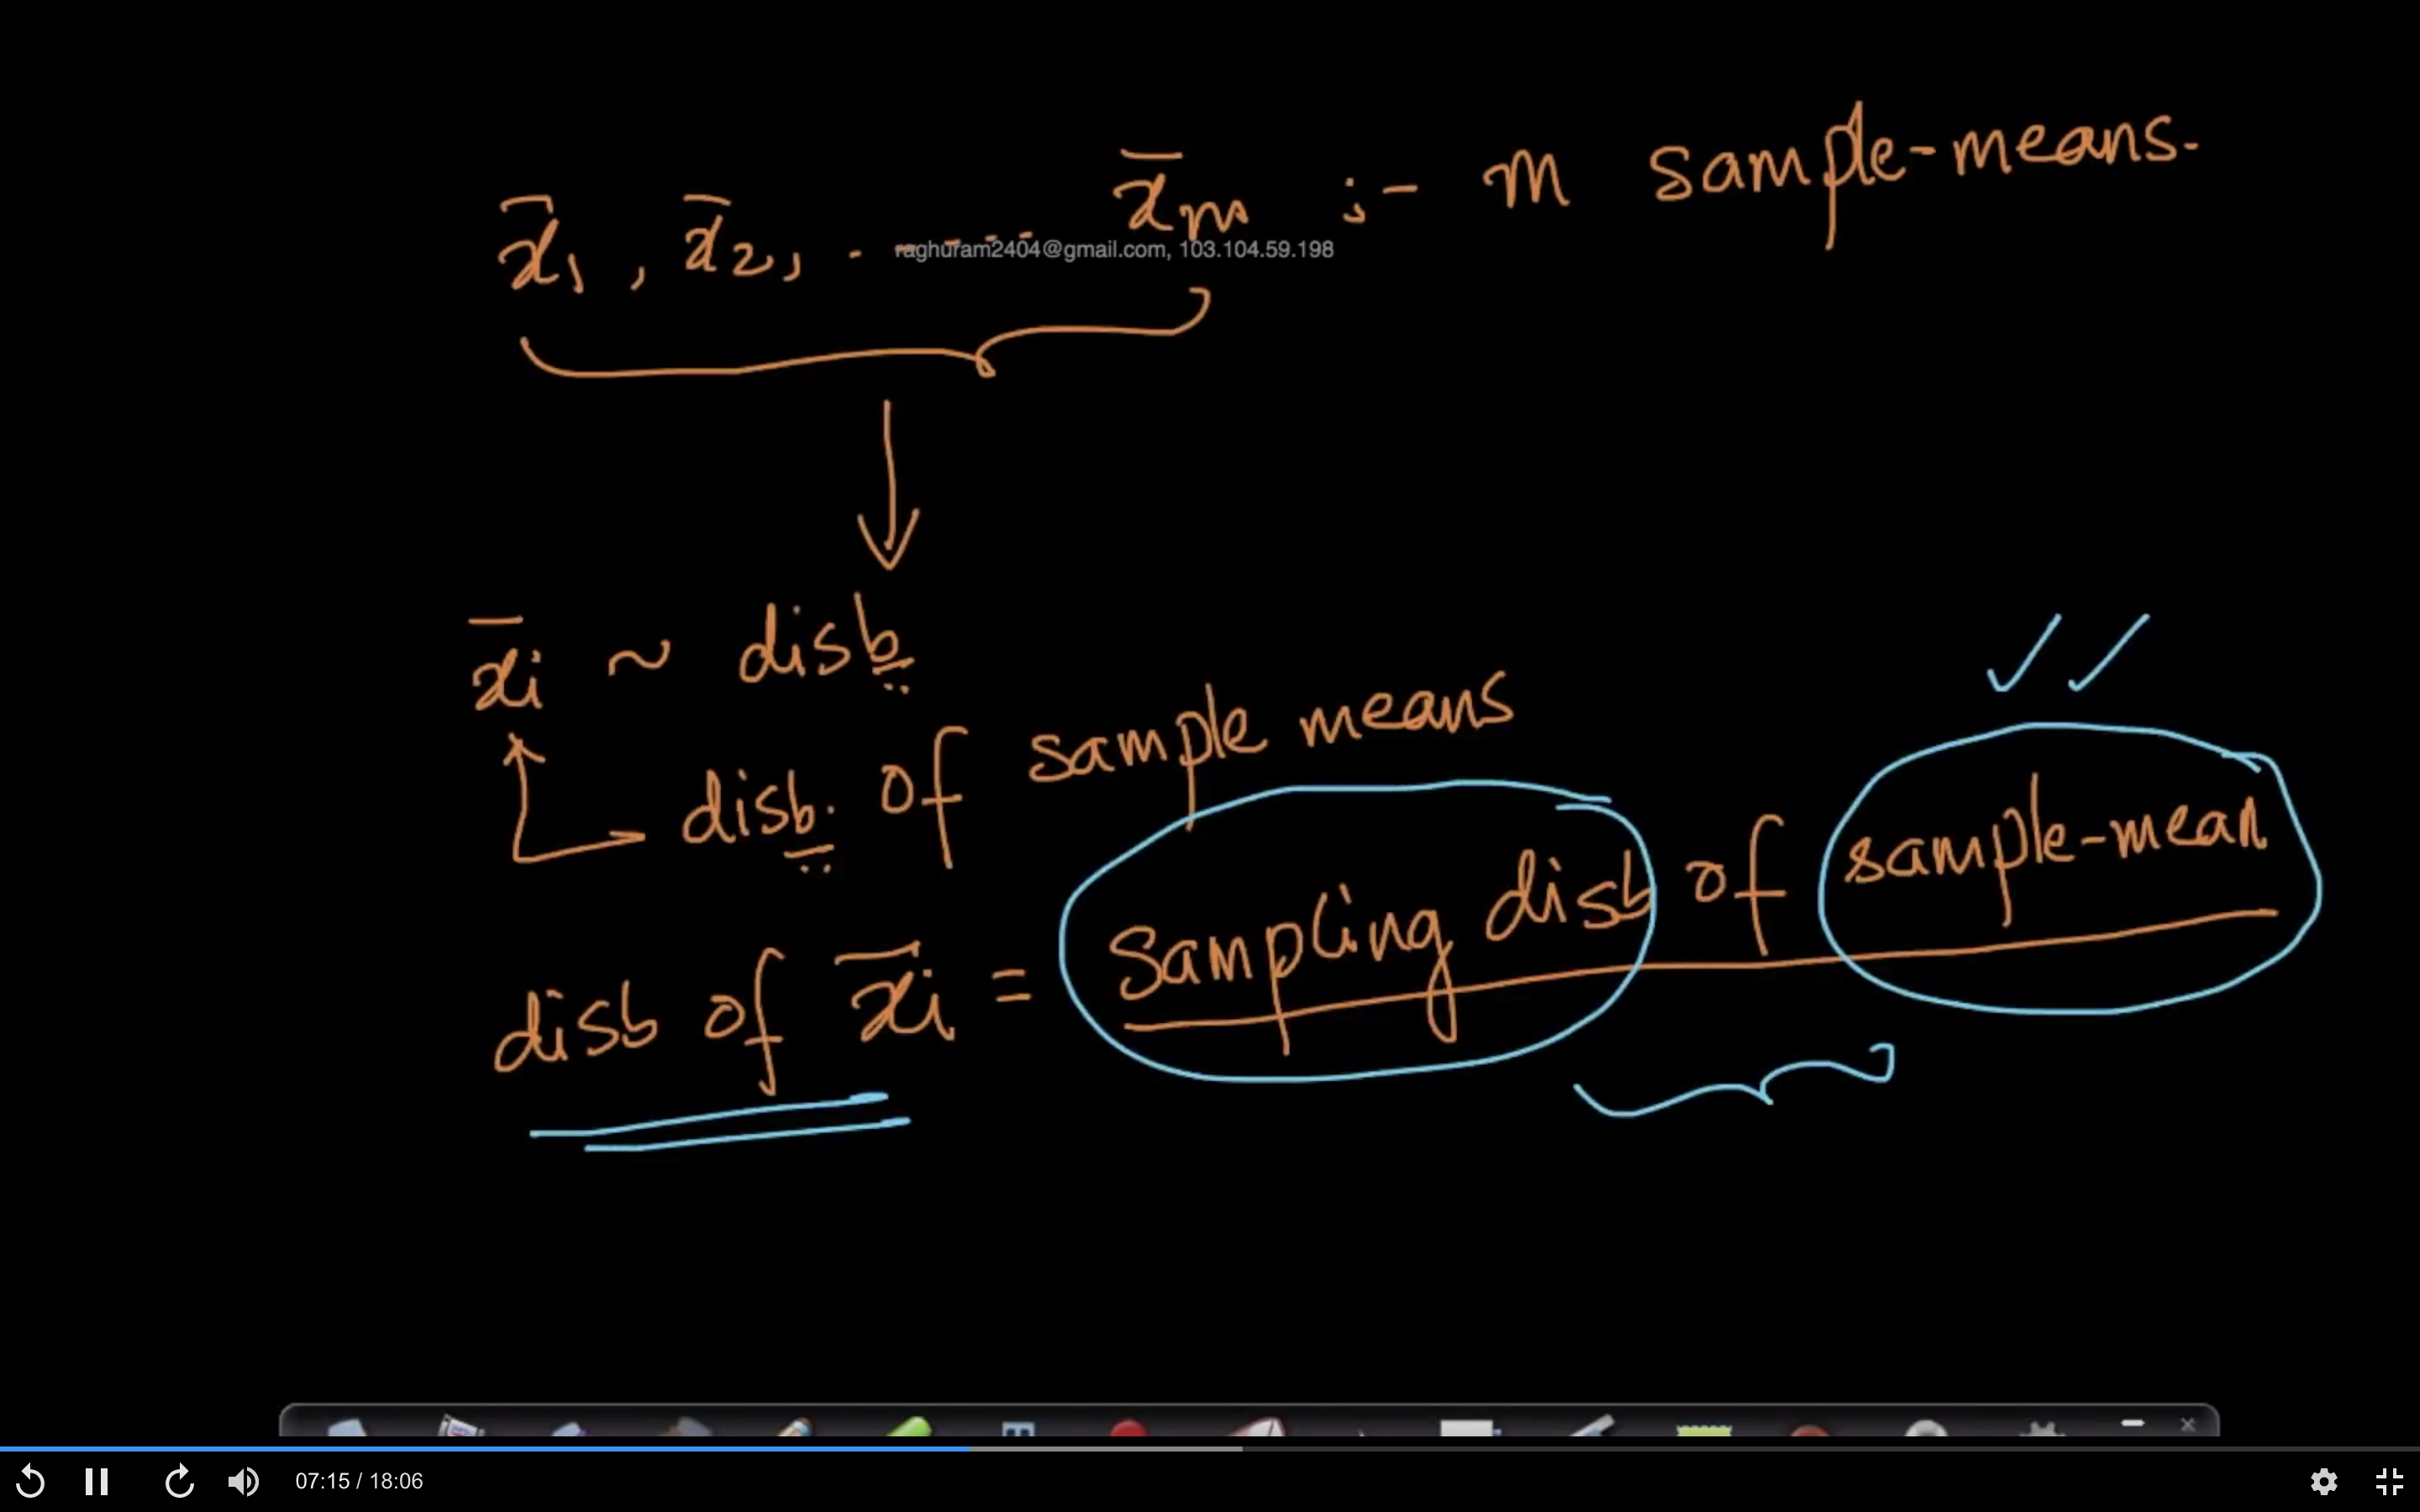 x̄₁, x̄₂, . - - -- x̄ₘ ;- m sample-means.
raghuram2404@gmail.com, 103.104.59.198
x̄ᵢ ~ disb
disb. of sample means
disb of x̄ᵢ = Sampling disb of sample-mean
07:15 / 18:06